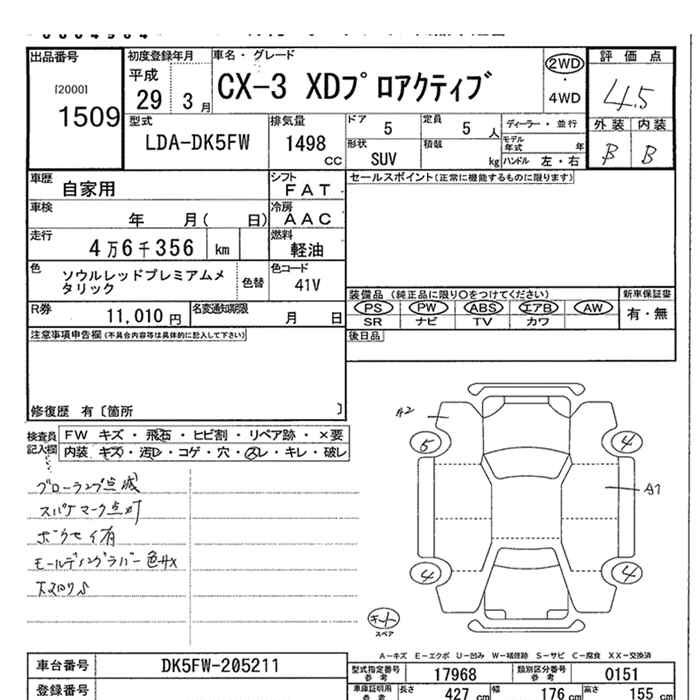 出品番号
[2000]
1509
初度登録年月
平成
29 3 月
車名・グレード
CX-3 XDプロアクティブ
2WD
・
4WD
評価点
4.5
外装 内装
B B
型式
LDA-DK5FW
排気量
1498
CC
ドア
5
定員
5 人
形状
SUV
積載
kg
ディーラー・並行
モデル年式 年
ハンドル 左・右
車歴
自家用
シフト
FAT
車検
年 月( 日)
冷房
AAC
走行
4万6千356 km
燃料
軽油
色
ソウルレッドプレミアムメタリック
色替
色コード
41V
R券
11,010 円
名変通知期限
月 日
セールスポイント(正常に機能するものに限ります)
装備品(純正品に限り○をつけてください)
PS PW ABS エアB AW
SR ナビ TV カワ
新車保証書
有・無
後日品
注意事項申告欄(不具合内容等は具体的に記入して下さい)
修復歴 有〔箇所 〕
検査員記入欄
FW キズ・飛石・ヒビ割・リペア跡・×要
内装 キズ・汚レ・コゲ・穴・スレ・キレ・破レ
グローランプ点滅
スパナマーク点灯
A2
5
4
A1
4
4
キート
スペア
A-キズ E-エクボ U-凹み W-補修跡 S-サビ C-腐食 XX-交換済
車台番号
DK5FW-205211
登録番号
型式指定番号
参考
17968
類別区分番号
参考
0151
車庫証明用
参考
長さ
427 cm
幅
176 cm
高さ
155 cm